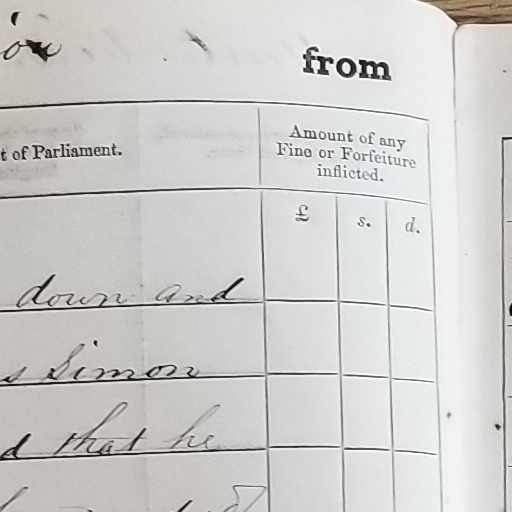 from
t of Parliament.
Amount of any
Fine or Forfeiture
inflicted.
£ s. d.
down and
s Simon
d that he